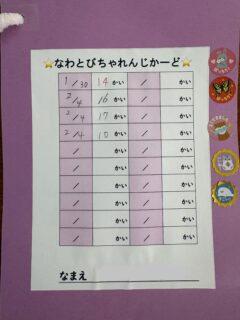 ⭐なわとびちゃれんじかーど⭐
1/30 14 かい / かい
2/4 16 かい / かい
2/4 17 かい / かい
2/4 10 かい / かい
/ かい / かい
/ かい / かい
/ かい / かい
/ かい / かい
/ かい / かい
/ かい / かい
なまえ